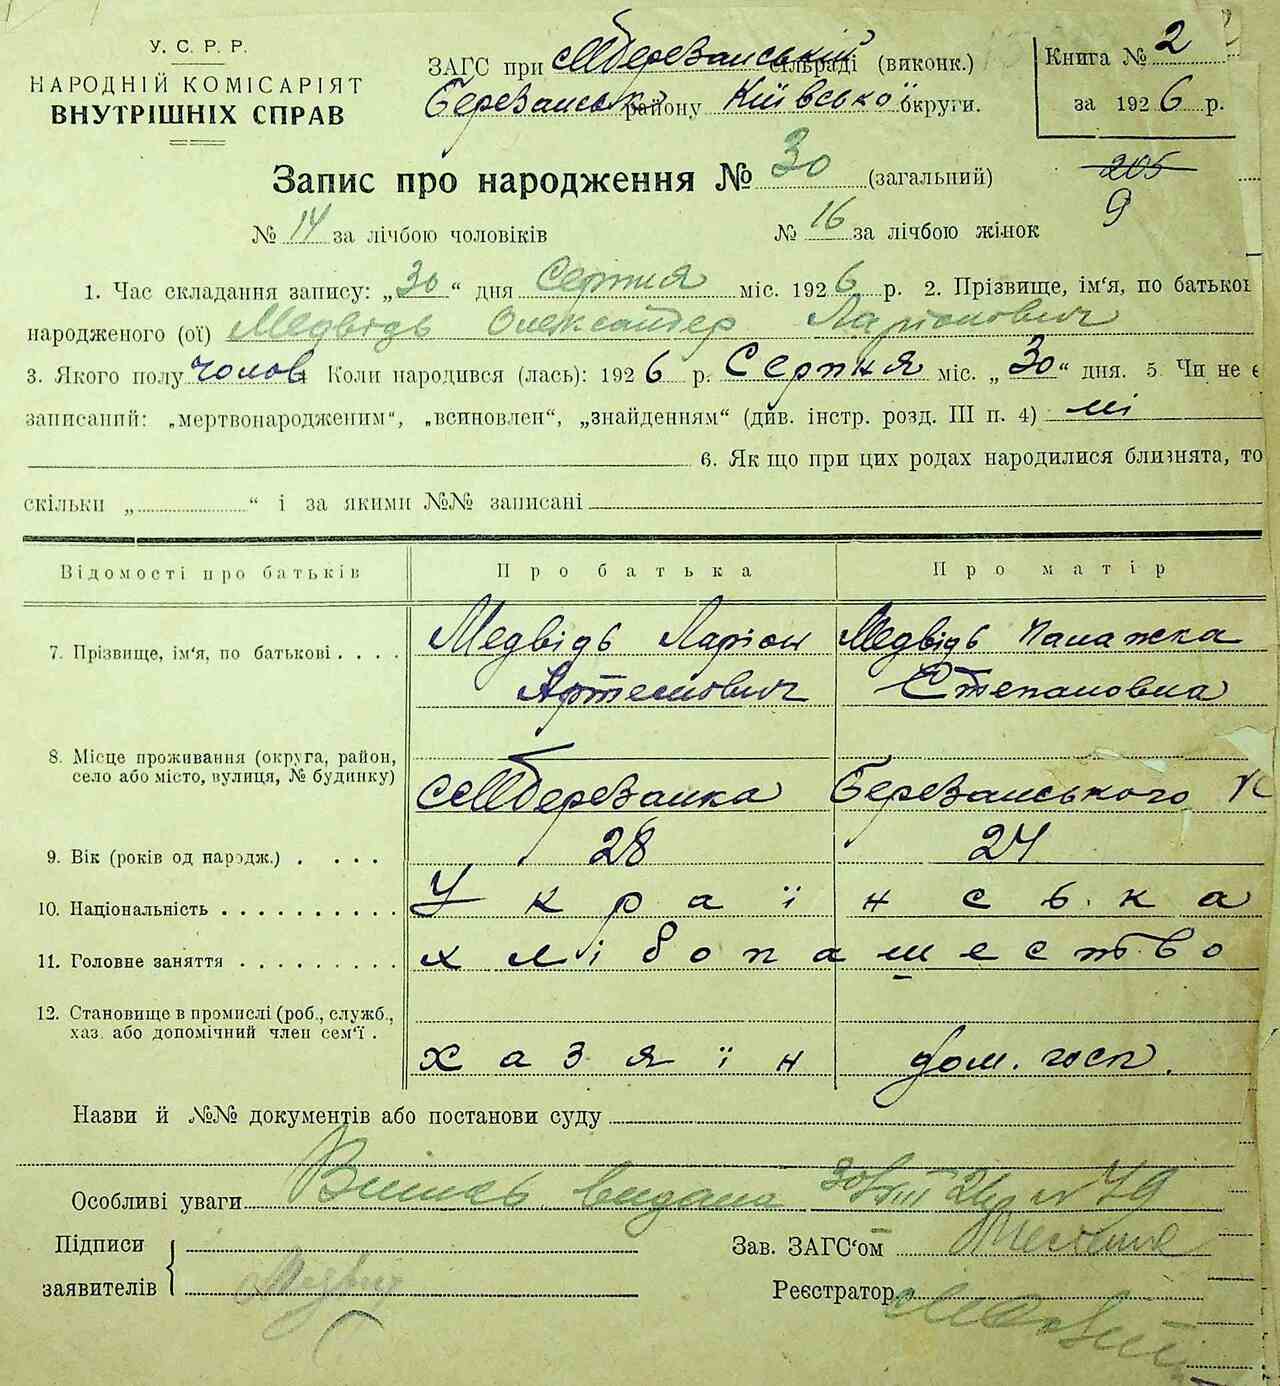 У. С. Р. Р.
НАРОДНІЙ КОМІСАРІЯТ
ВНУТРІШНІХ СПРАВ
ЗАГС при смт Березанській сільраді (виконк.)
Березанськ району Київської округи.
Книга № 2
за 1926 р.
Запис про народження № 30 (загальний)
205
9
№ 14 за лічбою чоловіків № 16 за лічбою жінок
1. Час складання запису: „30“ дня Серпня міс. 1926 р. 2. Прізвище, ім'я, по батькові
народженого (ої) Медвідь Олександер Ларіонович
3. Якого полу чолов 4 Коли народився (лась): 1926 р. Серпня міс. „30“ дня. 5. Чи не є
записаний: „мертвонародженим“, „всиновлен“, „знайденням“ (див. інстр. розд. III п. 4) ні
6. Як що при цих родах народилися близнята, то
скільки „ “ і за якими №№ записані
Відомості про батьків Про батька Про матір
7. Прізвище, ім'я, по батькові Медвідь Ларіон Медвідь Палажка
Артемович Степановна
8. Місце проживання (округа, район,
село або місто, вулиця, № будинку)
Березанка Березанського
9. Вік (років од народж.) 28 24
10. Національність Українська
11. Головне заняття хлібопашество
12. Становище в промислі (роб., служб.,
хаз. або допомічний член сем'ї .
хазяїн дом. госп.
Назви й №№ документів або постанови суду
Особливі уваги Випись видана 30/VIII 26 р № 79
Підписи
заявителів
Медвідь
Зав. ЗАГС'ом
Реєстратор